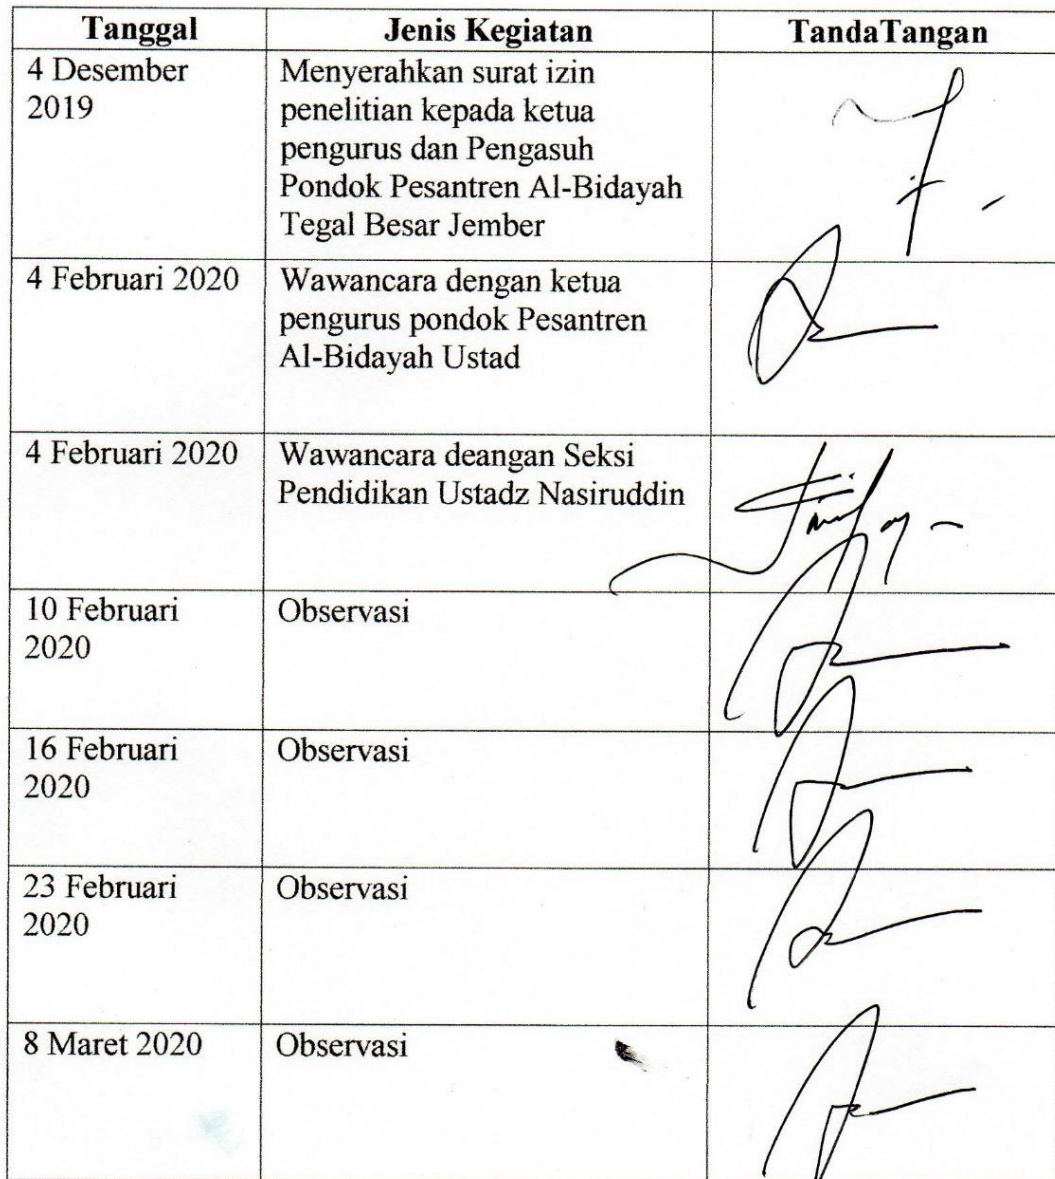 Tanggal Jenis Kegiatan TandaTangan
4 Desember
2019
Menyerahkan surat izin
penelitian kepada ketua
pengurus dan Pengasuh
Pondok Pesantren Al-Bidayah
Tegal Besar Jember
4 Februari 2020
Wawancara dengan ketua
pengurus pondok Pesantren
Al-Bidayah Ustad
4 Februari 2020
Wawancara deangan Seksi
Pendidikan Ustadz Nasiruddin
10 Februari
2020
Observasi
16 Februari
2020
Observasi
23 Februari
2020
Observasi
8 Maret 2020
Observasi